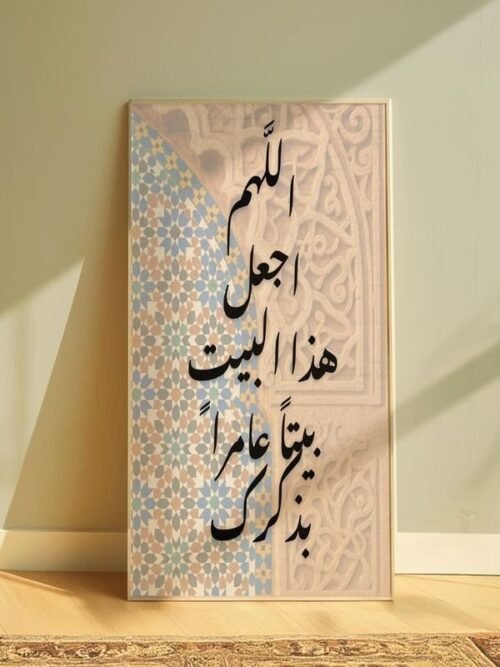 اللَّهم
اجعل
هذا البيت
بيتاً عامراً
بذكرك